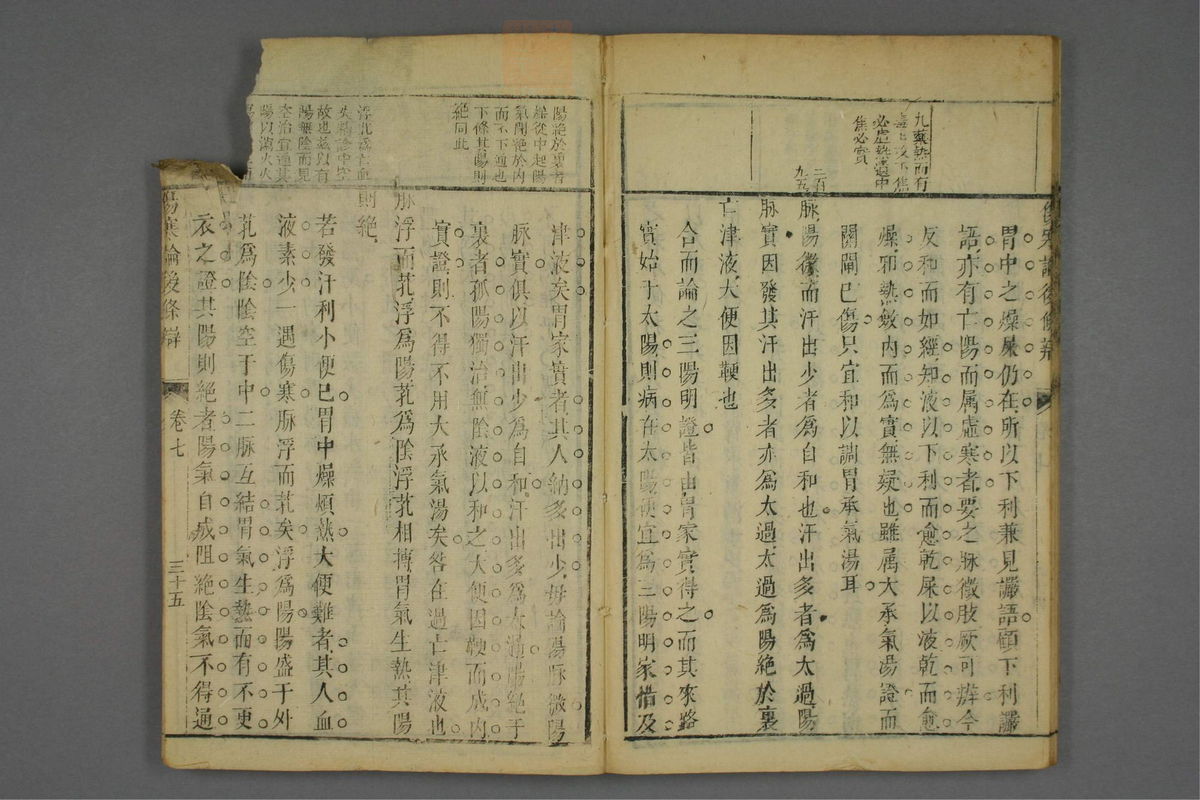 九藥熱而有
必虛熱還中
焦必實
二百
九五
胃中之燥屎仍在所以下利兼見讝語顧下利讝
語亦有亡陽而属虛寒者要之脉微肢厥可辨今
反和而如經知液以下利而愈乾屎以液乾而愈
燥邪熱歛內而爲實無疑也雖属大承氣湯證而
關閘已傷只宜和以調胃承氣湯耳
脉陽微而汗出少者爲自和也汗出多者爲太過陽
脉實因發其汗出多者亦爲太過太過爲陽絶於裏
亡津液大便因鞕也
合而論之三陽明證皆由胃家實得之而其來路
實始于太陽則病在太陽便宜爲三陽明家惜及
陽絶於裏者
綠從中起陽
氣閉絶於內
而不下通也
下條其陽則
絶同此
津液矣胃家實者其人納多出少毋論陽脉微陽
脉實俱以汗出少爲自和汗出多爲太過陽絶于
裏者孤陽獨治無陰液以和之大便因鞕而成內
實證則不得不用大承氣湯矣咎在過亡津液也
脉浮而芤浮爲陽芤爲陰浮芤相搏胃氣生熱其陽
則絶
浮芤爲亡血
失精診中空
故也兹以有
陽無陰而見
空治宜通其
陽以瀉火火
若發汗利小便已胃中燥煩熱大便難者其人血
液素少一遇傷寒脉浮而芤矣浮爲陽陽盛于外
芤爲陰陰空于中二脉互結胃氣生熱而有不更
衣之證其陽則絶者陽氣自成阻絶陰氣不得通
傷寒論後條辯
卷七
三十五